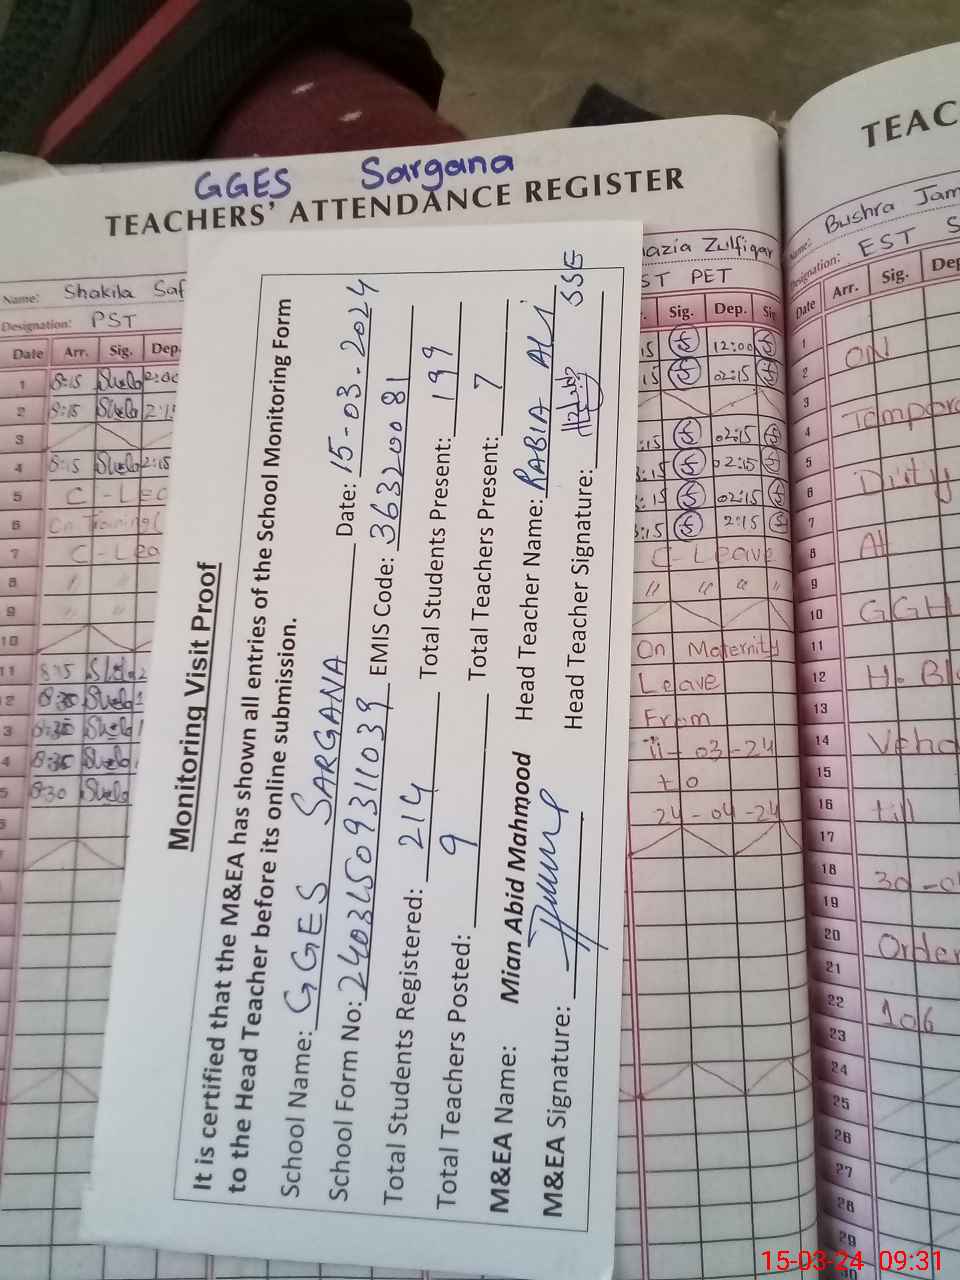 GGES Sargana
TEACHERS' ATTENDANCE REGISTER
Name: Shakila Saf
Designation: PST
Date Arr. Sig. Dep.
1 8:15
2 8:15
3
4 8:15 2:15
5 C-Lea
6 On Training
7 C-Lea
8 " "
9 " "
10
11 8:15
12 8:30
3 8:30
4 8:30
5 8:30
Monitoring Visit Proof
It is certified that the M&EA has shown all entries of the School Monitoring Form
to the Head Teacher before its online submission.
School Name: GGES SARGANA Date: 15-03-2024
School Form No: EMIS Code: 36320081
Total Students Registered: 214 Total Students Present: 199
Total Teachers Posted: 9 Total Teachers Present: 7
M&EA Name: Mian Abid Mahmood Head Teacher Name: RABIA ALI
M&EA Signature: Head Teacher Signature: SSE
azia Zulfiqar
ST PET
Sig. Dep. Si
:15 12:00
:15 02:15
:15 02:15
:15 02:15
:15 02:15
:15 2:15
C-Leave
" " " "
On Maternity
Leave
From
11-03-24
to
24-04-24
TEAC
Name: Bushra Jam
Designation: EST S
Date Arr. Sig. Dep
1
2 ON
3
4 Tempora
5
6 Duty
7
8 At
9
10 GGH
11
12 H. Bl
13
14 Veha
15
16 till
17
18 30-0
19
20 Order
21
22 106
23
24
25
26
27
28
29
30
15-03-24 09:31